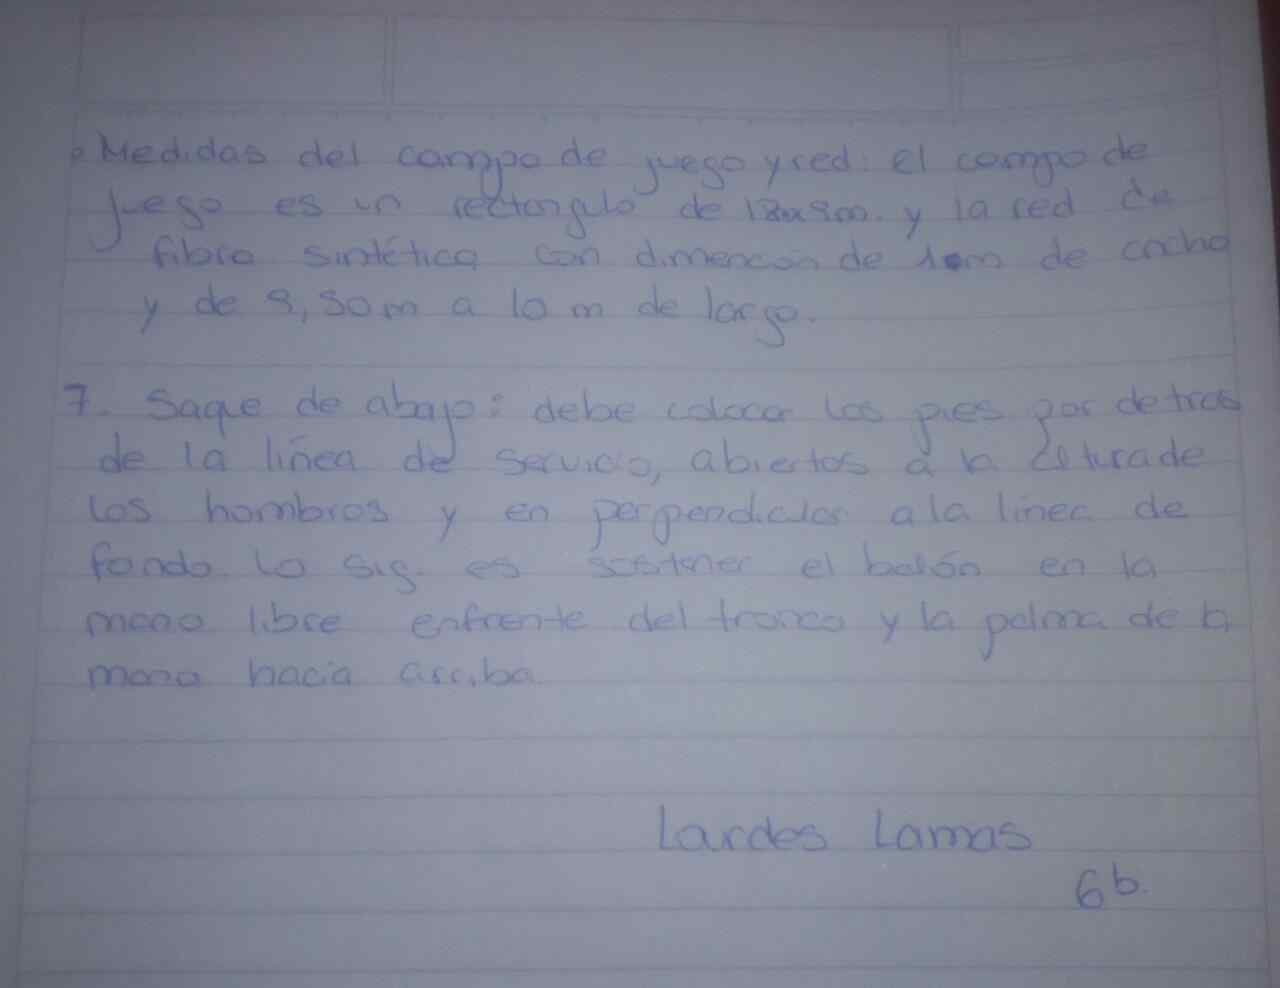 • Medidas del campo de juego y red: el campo de
juego es un rectangulo de 18x9m. y la red de
fibra sintética con dimencon de 1m de ancho
y de 9,50m a 10 m de largo.
7. Saque de abajo: debe colocar los pies por detras
de la liñea de servicio, abiertos a la de
los hombros y en perpendicular a la linea de
fondo. Lo sig. es sostener el balón en la
mano libre enfrente del tronco y la palma de la
mano hacia arriba
Lardes Lamas
6b.